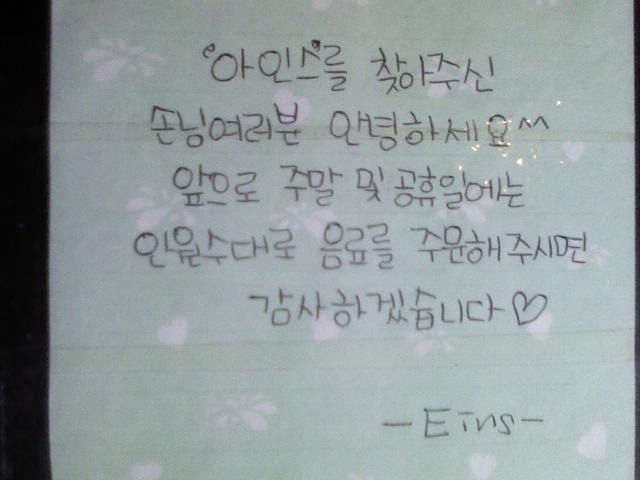 "아인스"를 찾아주신
손님여러분 안녕하세요^^
앞으로 주말 및 공휴일에는
인원수대로 음료를 주문해주시면
감사하겠습니다♡
-Eins-